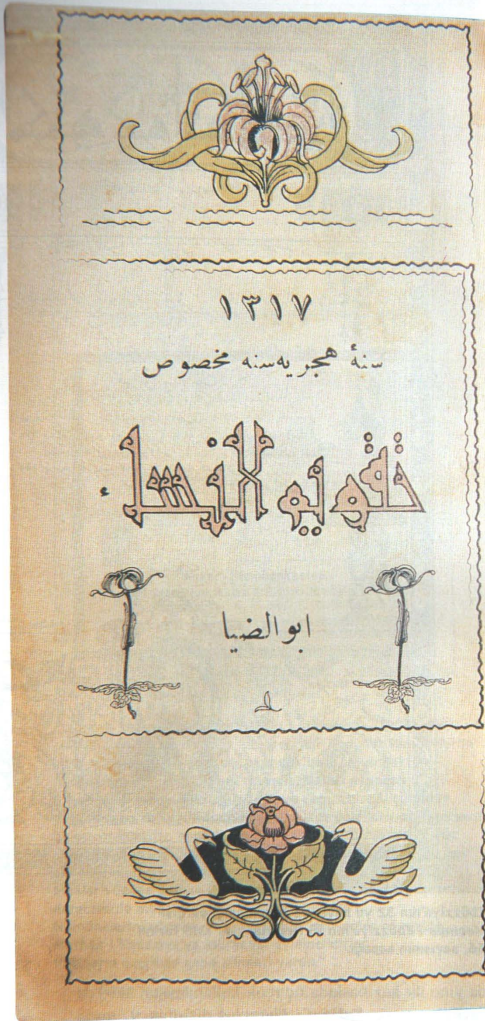 ١٣١٧
سنهٔ هجریه‌سنه مخصوص
تقويم النساء
ابوالضیا